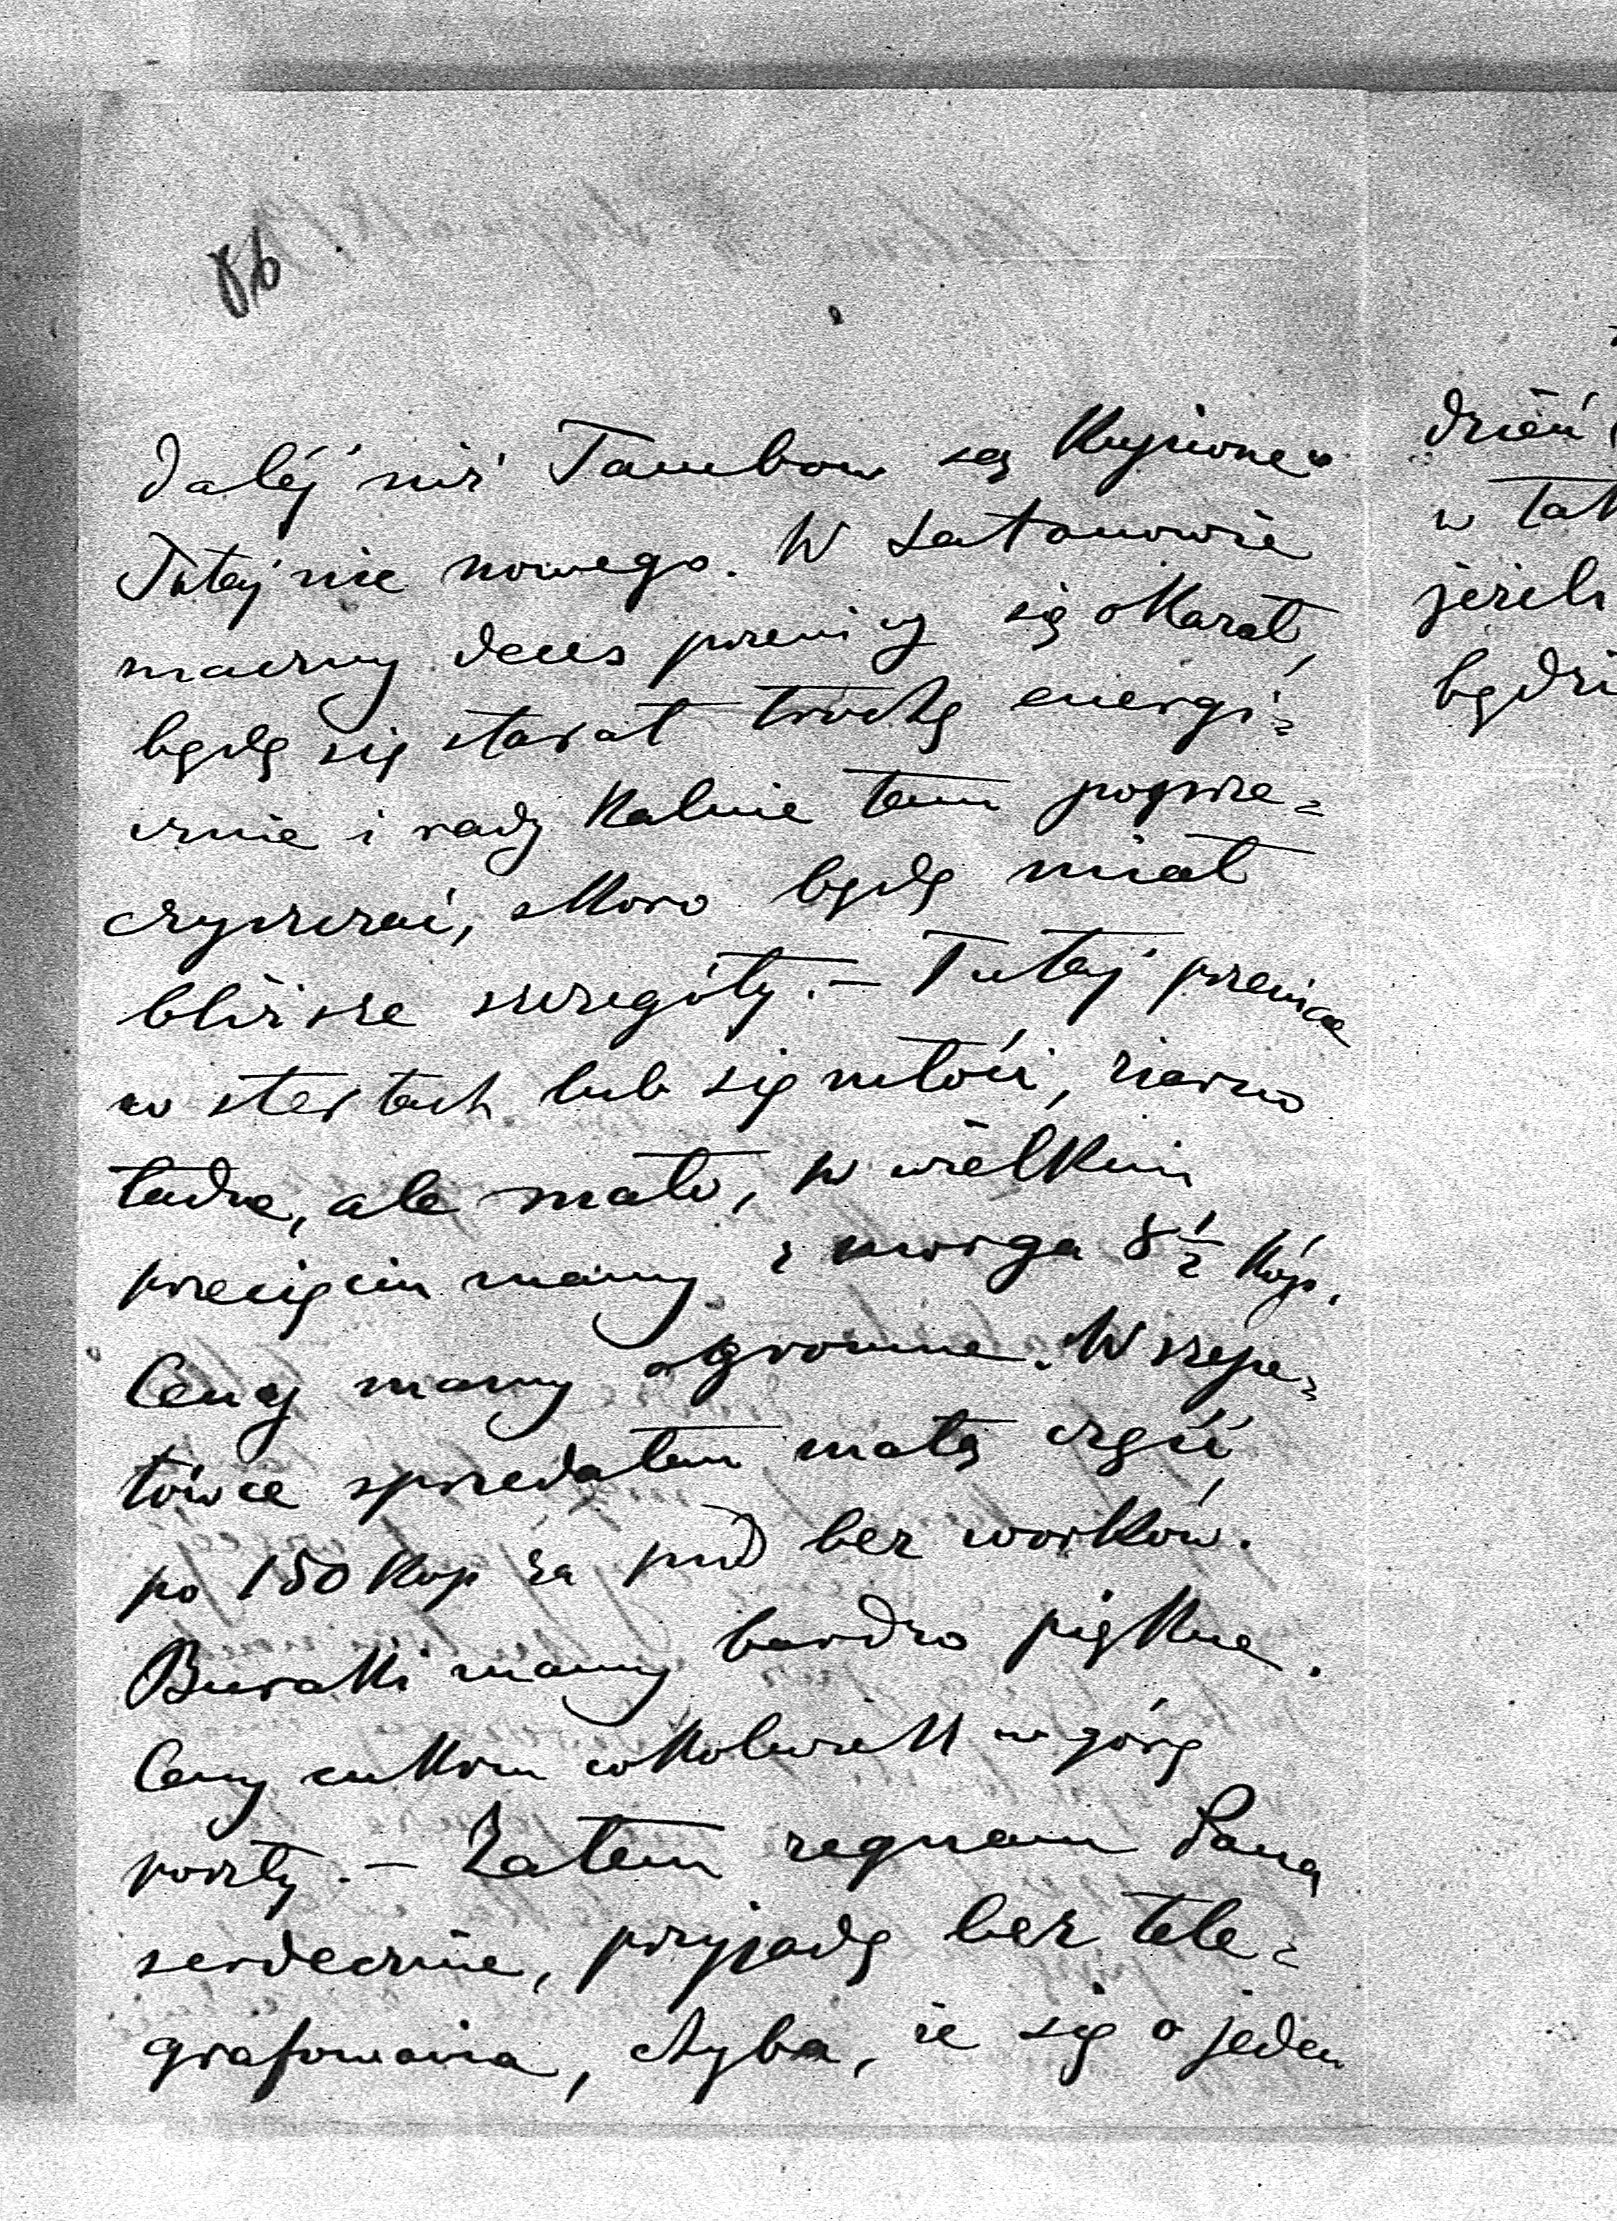 86
daléj niż Tambow są kupione.
Tutaj nic nowego. W Satanowie
znaczny deces pszenicy się okazał,
będę się starał trochę energi=
cznie i radykalnie tam poprze=
czyszczać, skoro będę miał
bliższe szczegóły. – Tutaj pszenica
w stertach lub się młóci, ziarno
ładne, ale mało, w wielkim
przecięciu mamy z morga 8 1/2 kóp.
Ceny mamy ogromne. W Szepe=
tówce sprzedałem małą część
po 150 kop za pud bez worków.
Buraki mamy bardzo piękne.
Ceny cukru cokolwiek w górę
poszły. – Zatem żegnam Pana
serdecznie, przyjadę bez tele=
grafowania, chyba, że się o jeden
dzień
w tak
jeżeli
będzi